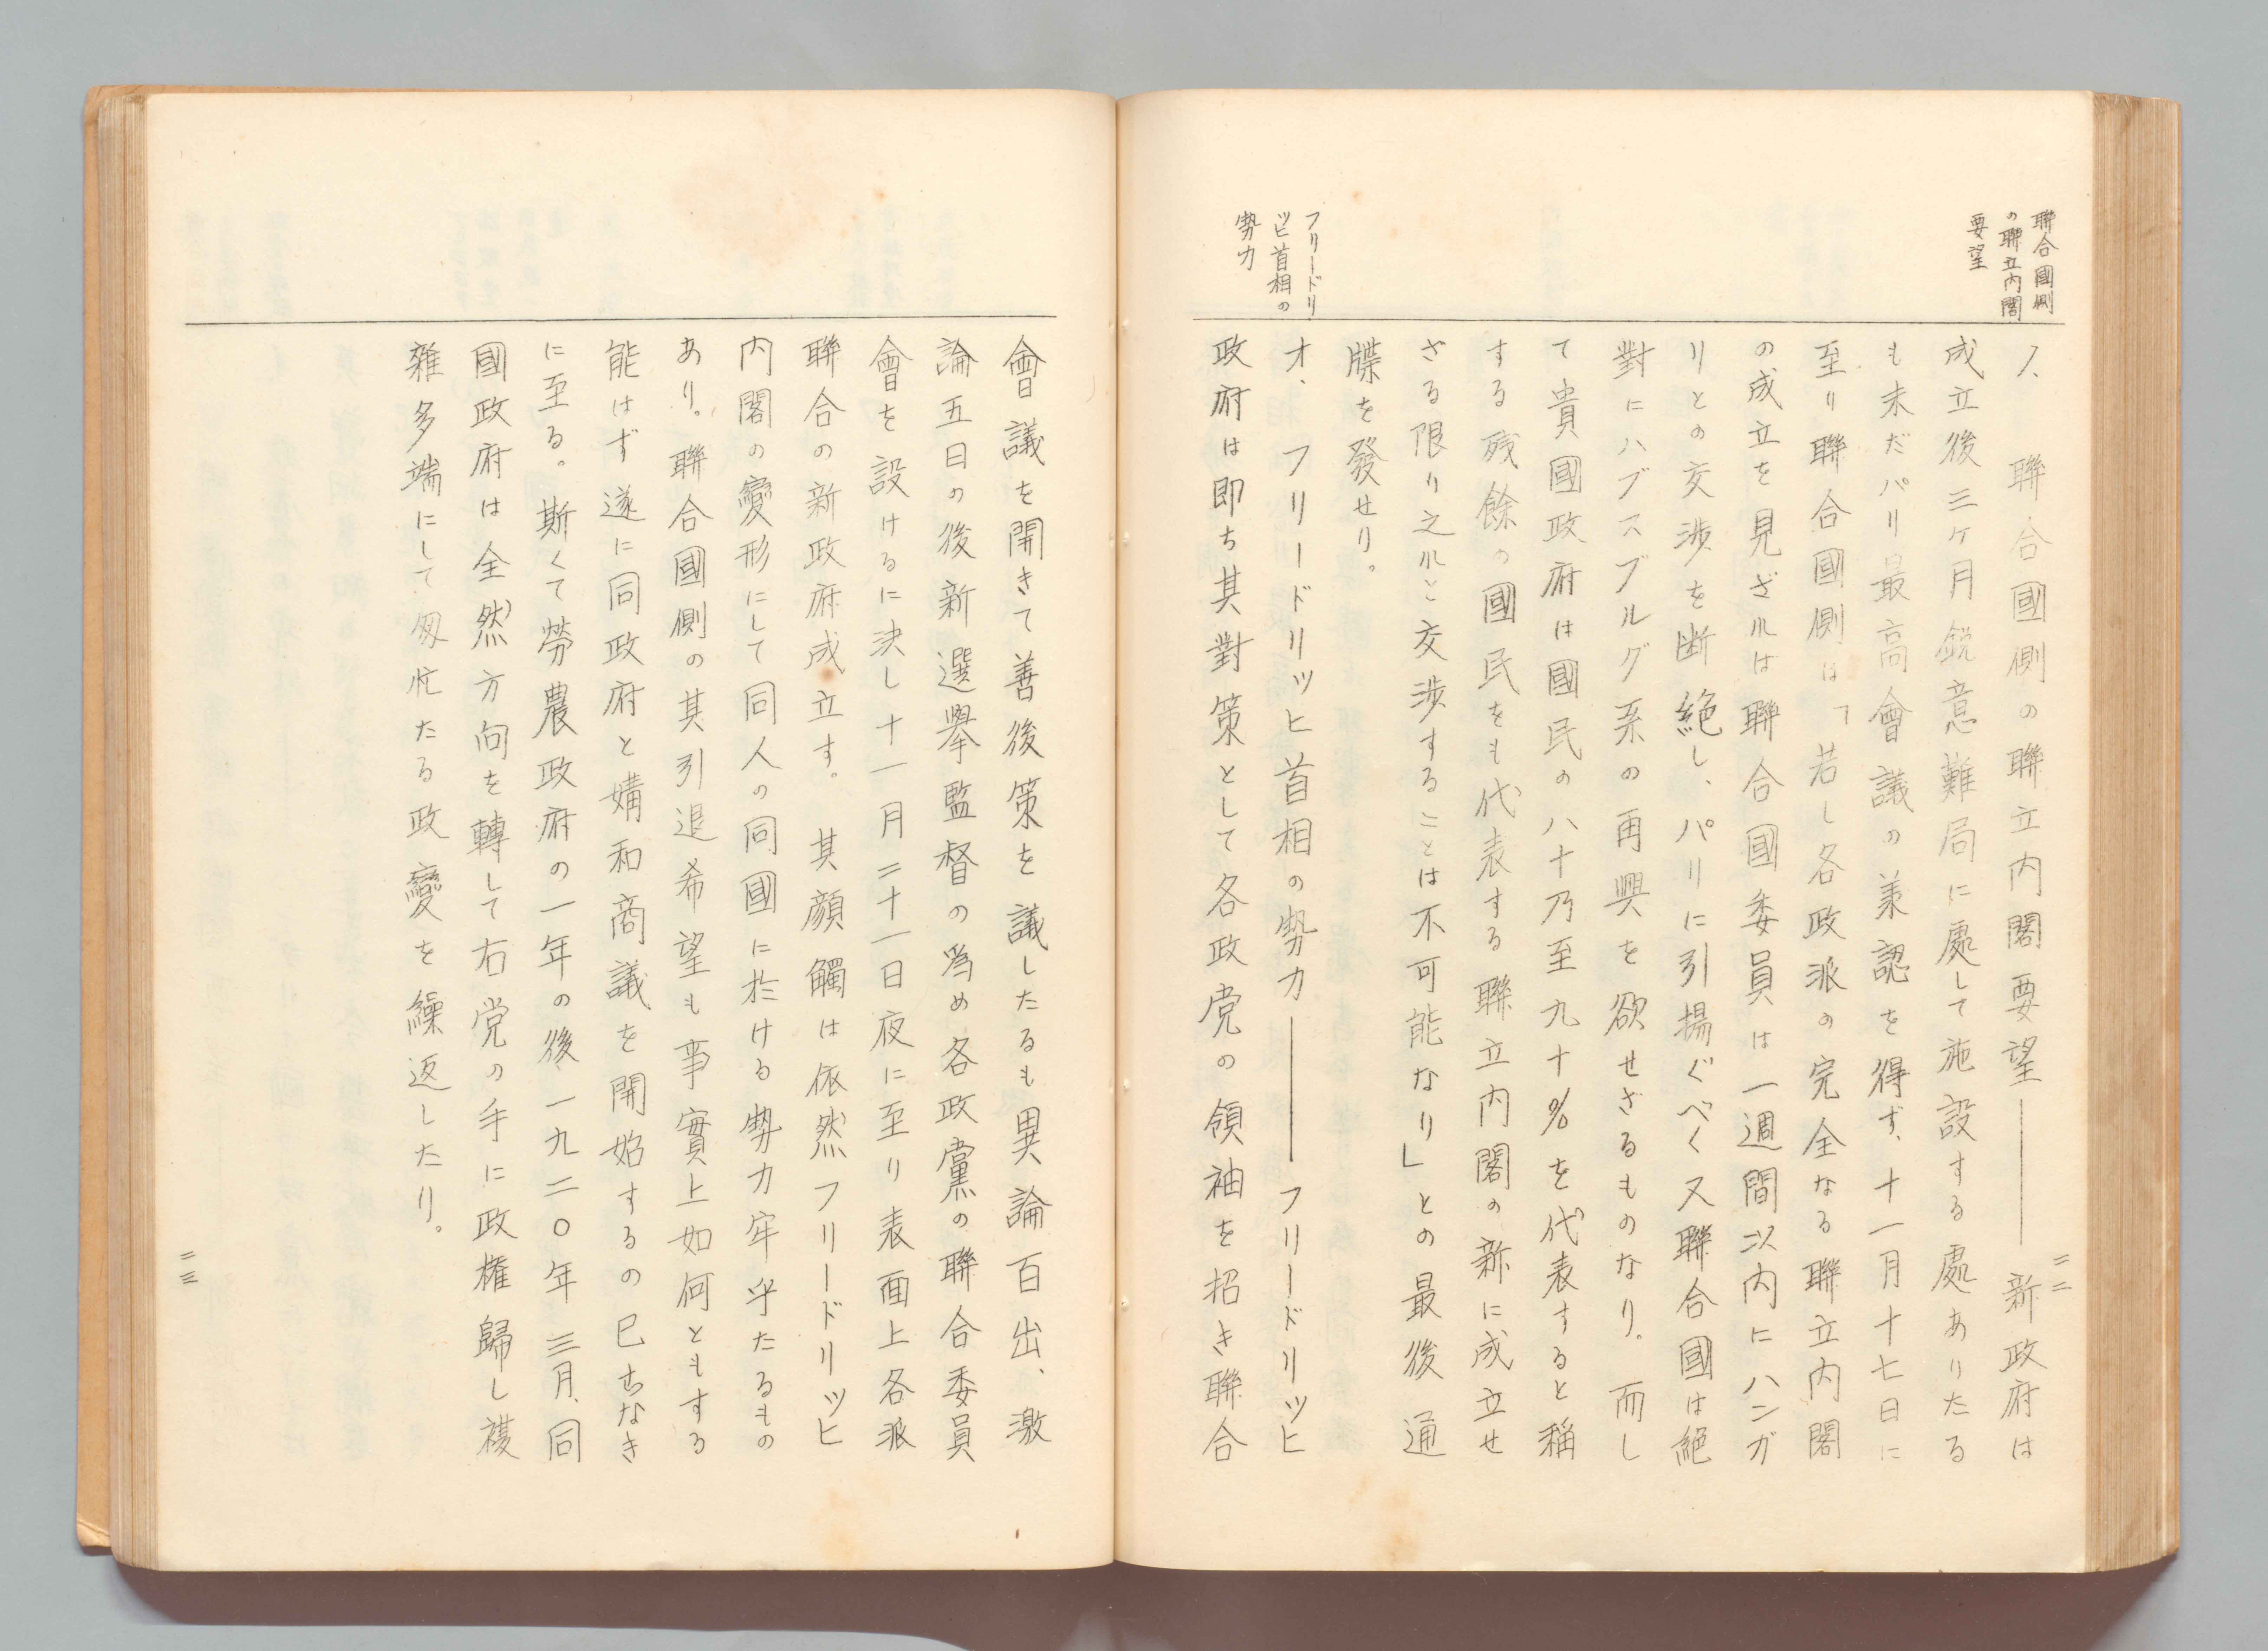 聯合國側
の聯立内閣
要望
ノ、聯合國側の聯立内閣要望――新政府は
成立後三ケ月鋭意難局に處して施設する處ありたる
も未だパリ最高會議の兼認を得ず、十一月十七日に
至り聯合國側は「若し各政派の完全なる聯立内閣
の成立を見ざれは聯合國委員は一週間以内にハンガ
リとの交渉を断絶し、パリに引揚ぐべく又聯合國は絶
對にハブスブルグ系の再興を欲せざるものなり。而し
て貴國政府は國民の八十乃至九十%を代表すると稱
する残餘の國民をも代表する聯立内閣の新に成立せ
ざる限り之れと交渉することは不可能なり」との最後通
牒を發せり。
フリードリ
ッヒ首相の
勢力
オ、フリードリッヒ首相の勢力――フリードリッヒ
政府は即ち其對策として各政党の領袖を招き聯合
二二
會議を開きて善後策を議したるも異論百出、激
論五日の後新選擧監督の爲め各政黨の聯合委員
會を設けるに決し十一月二十一日夜に至り表面上各派
聯合の新政府成立す。其顔觸は依然フリードリッヒ
内閣の變形にして同人の同國に於ける勢力牢乎たるもの
あり。聯合國側の其引退希望も事實上如何ともする
能はず遂に同政府と媾和商議を開始するの已むなき
に至る。斯くて勞農政府の一年の後一九二〇年三月、同
國政府は全然方向を轉して右党の手に政権歸し複
雜多端にして匆忙たる政變を繰返したり。
二三